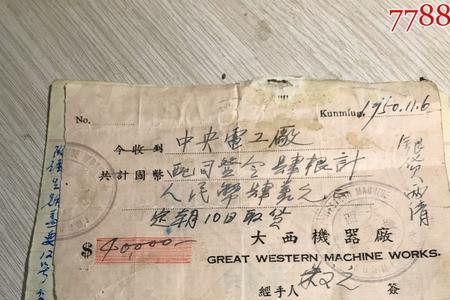 7788
No.
Kunming, 1950.11.6
今收到 中央電工廠
配司登令肆根計
共計國幣 人民幣肆萬元
定期10日取貨
銀貨兩清
$ 40,000—
大西機器廠
GREAT WESTERN MACHINE WORKS.
經手人 簽